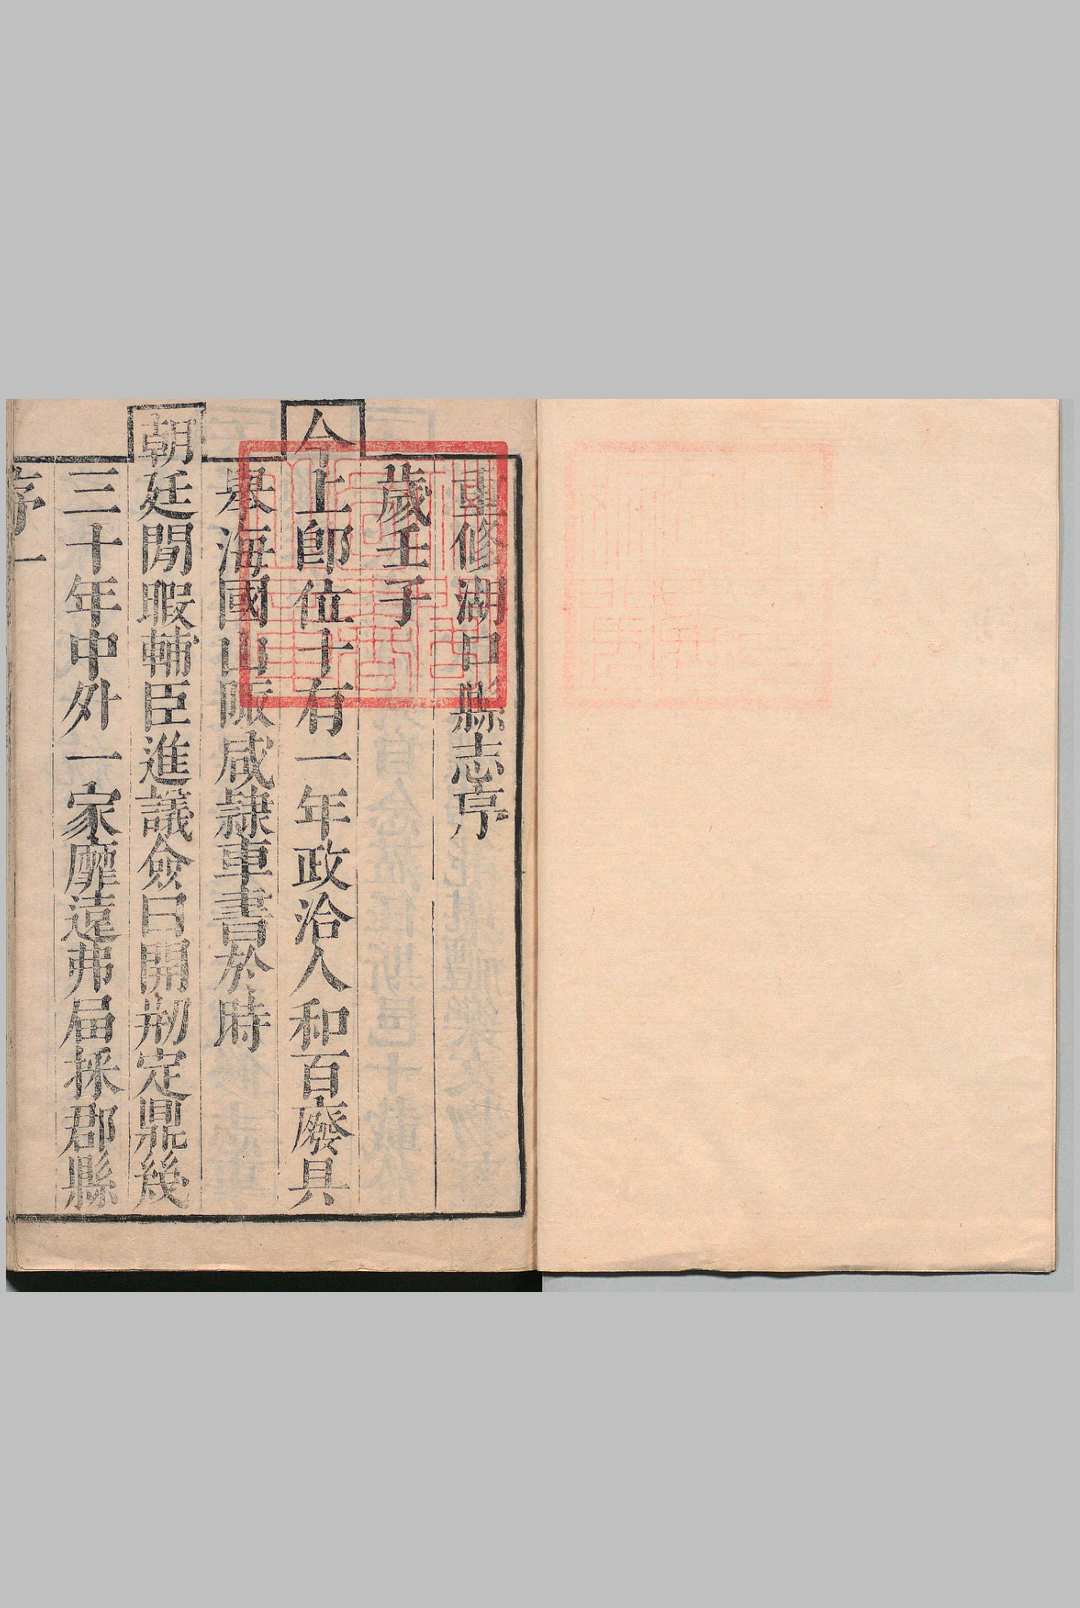 重修湖口縣志序
歲壬子
今上卽位十有一年政洽人和百廢具
舉海國山陬咸隸車書於時
朝廷閒暇輔臣進議僉曰開剏定鼎幾
三十年中外一家靡遠弗届採郡縣
序一